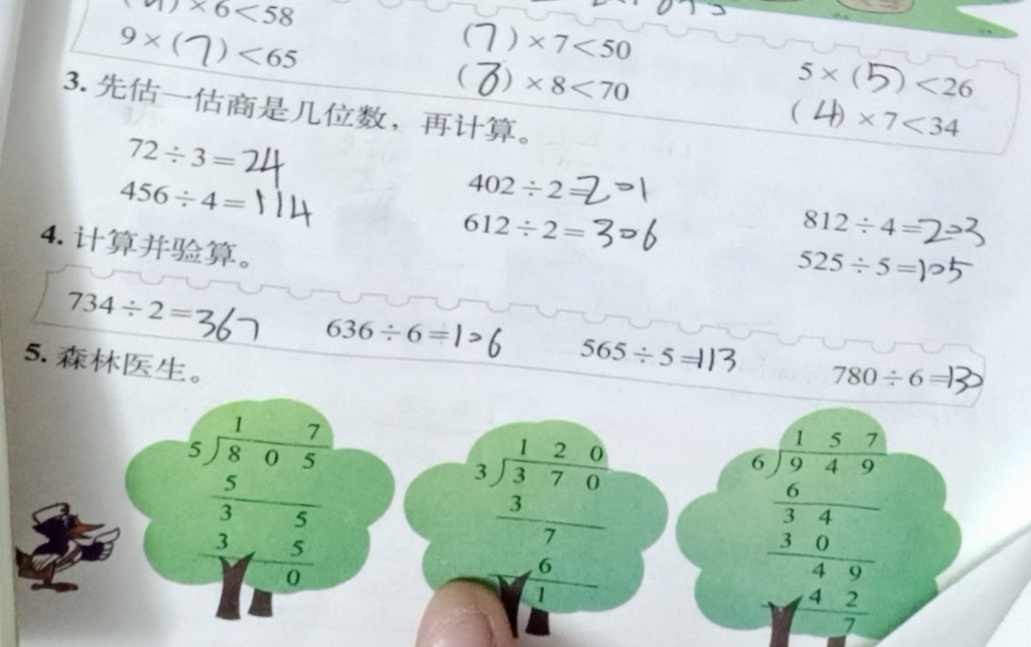 ×6<58
9×(7)<65
(7)×7<50
(8)×8<70
5×(5)<26
(4)×7<34
3. 先估一估商是几位数，再计算。
72÷3=24
402÷2=201
812÷4=203
456÷4=114
612÷2=306
525÷5=105
4. 计算并验算。
734÷2=367
636÷6=106
565÷5=113
780÷6=130
5. 森林医生。
1 7
5)8 0 5
5
3 5
3 5
0
1 2 0
3)3 7 0
3
7
6
1
1 5 7
6)9 4 9
6
3 4
3 0
4 9
4 2
7